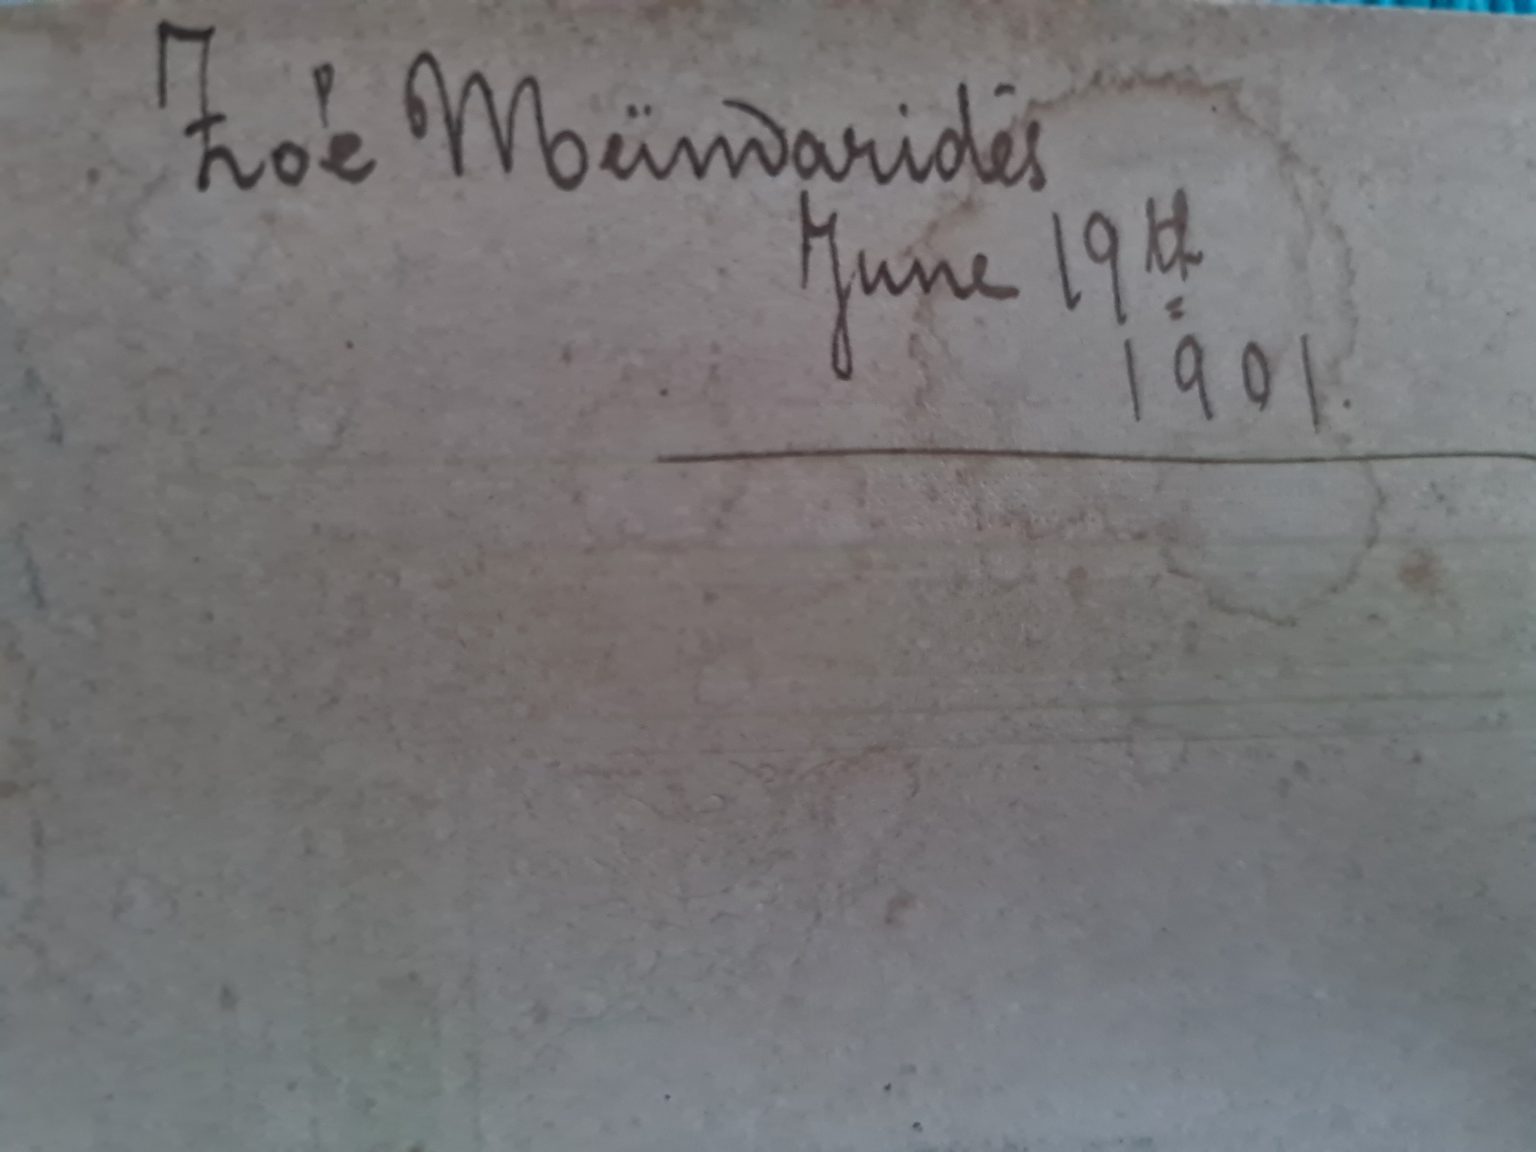 Zoé Meïmaridés
June 19th
1901.